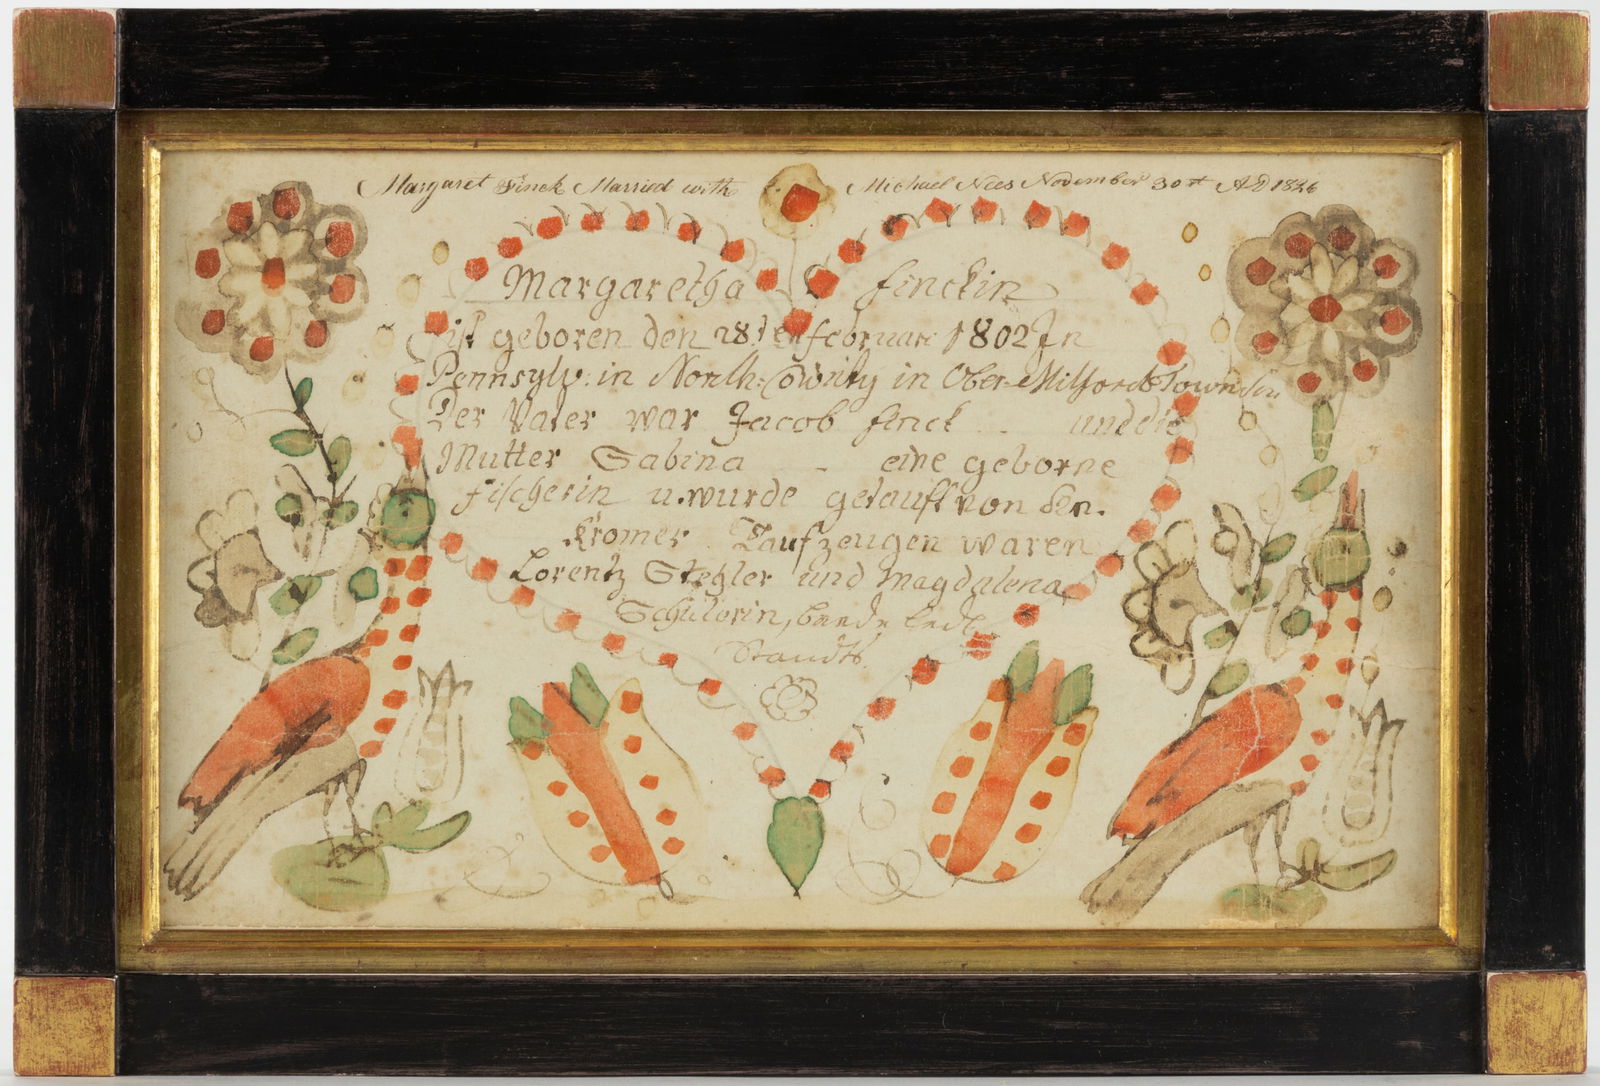 Margaret Finck Married with Michael Nees November 30th AD 1826
Margaretha Finckin
ist geboren den 28ten Februari 1802 In
Pennsylv: in North: County in Ober-Milford Township
Der Vater war Jacob Finck und die
Mutter Sabina eine geborne
Fischerin u. wurde getauft von Hn.
Kromer Taufzeugen waren
Lorentz Stegler und Magdalena
Schulorin, beede led:
Standts